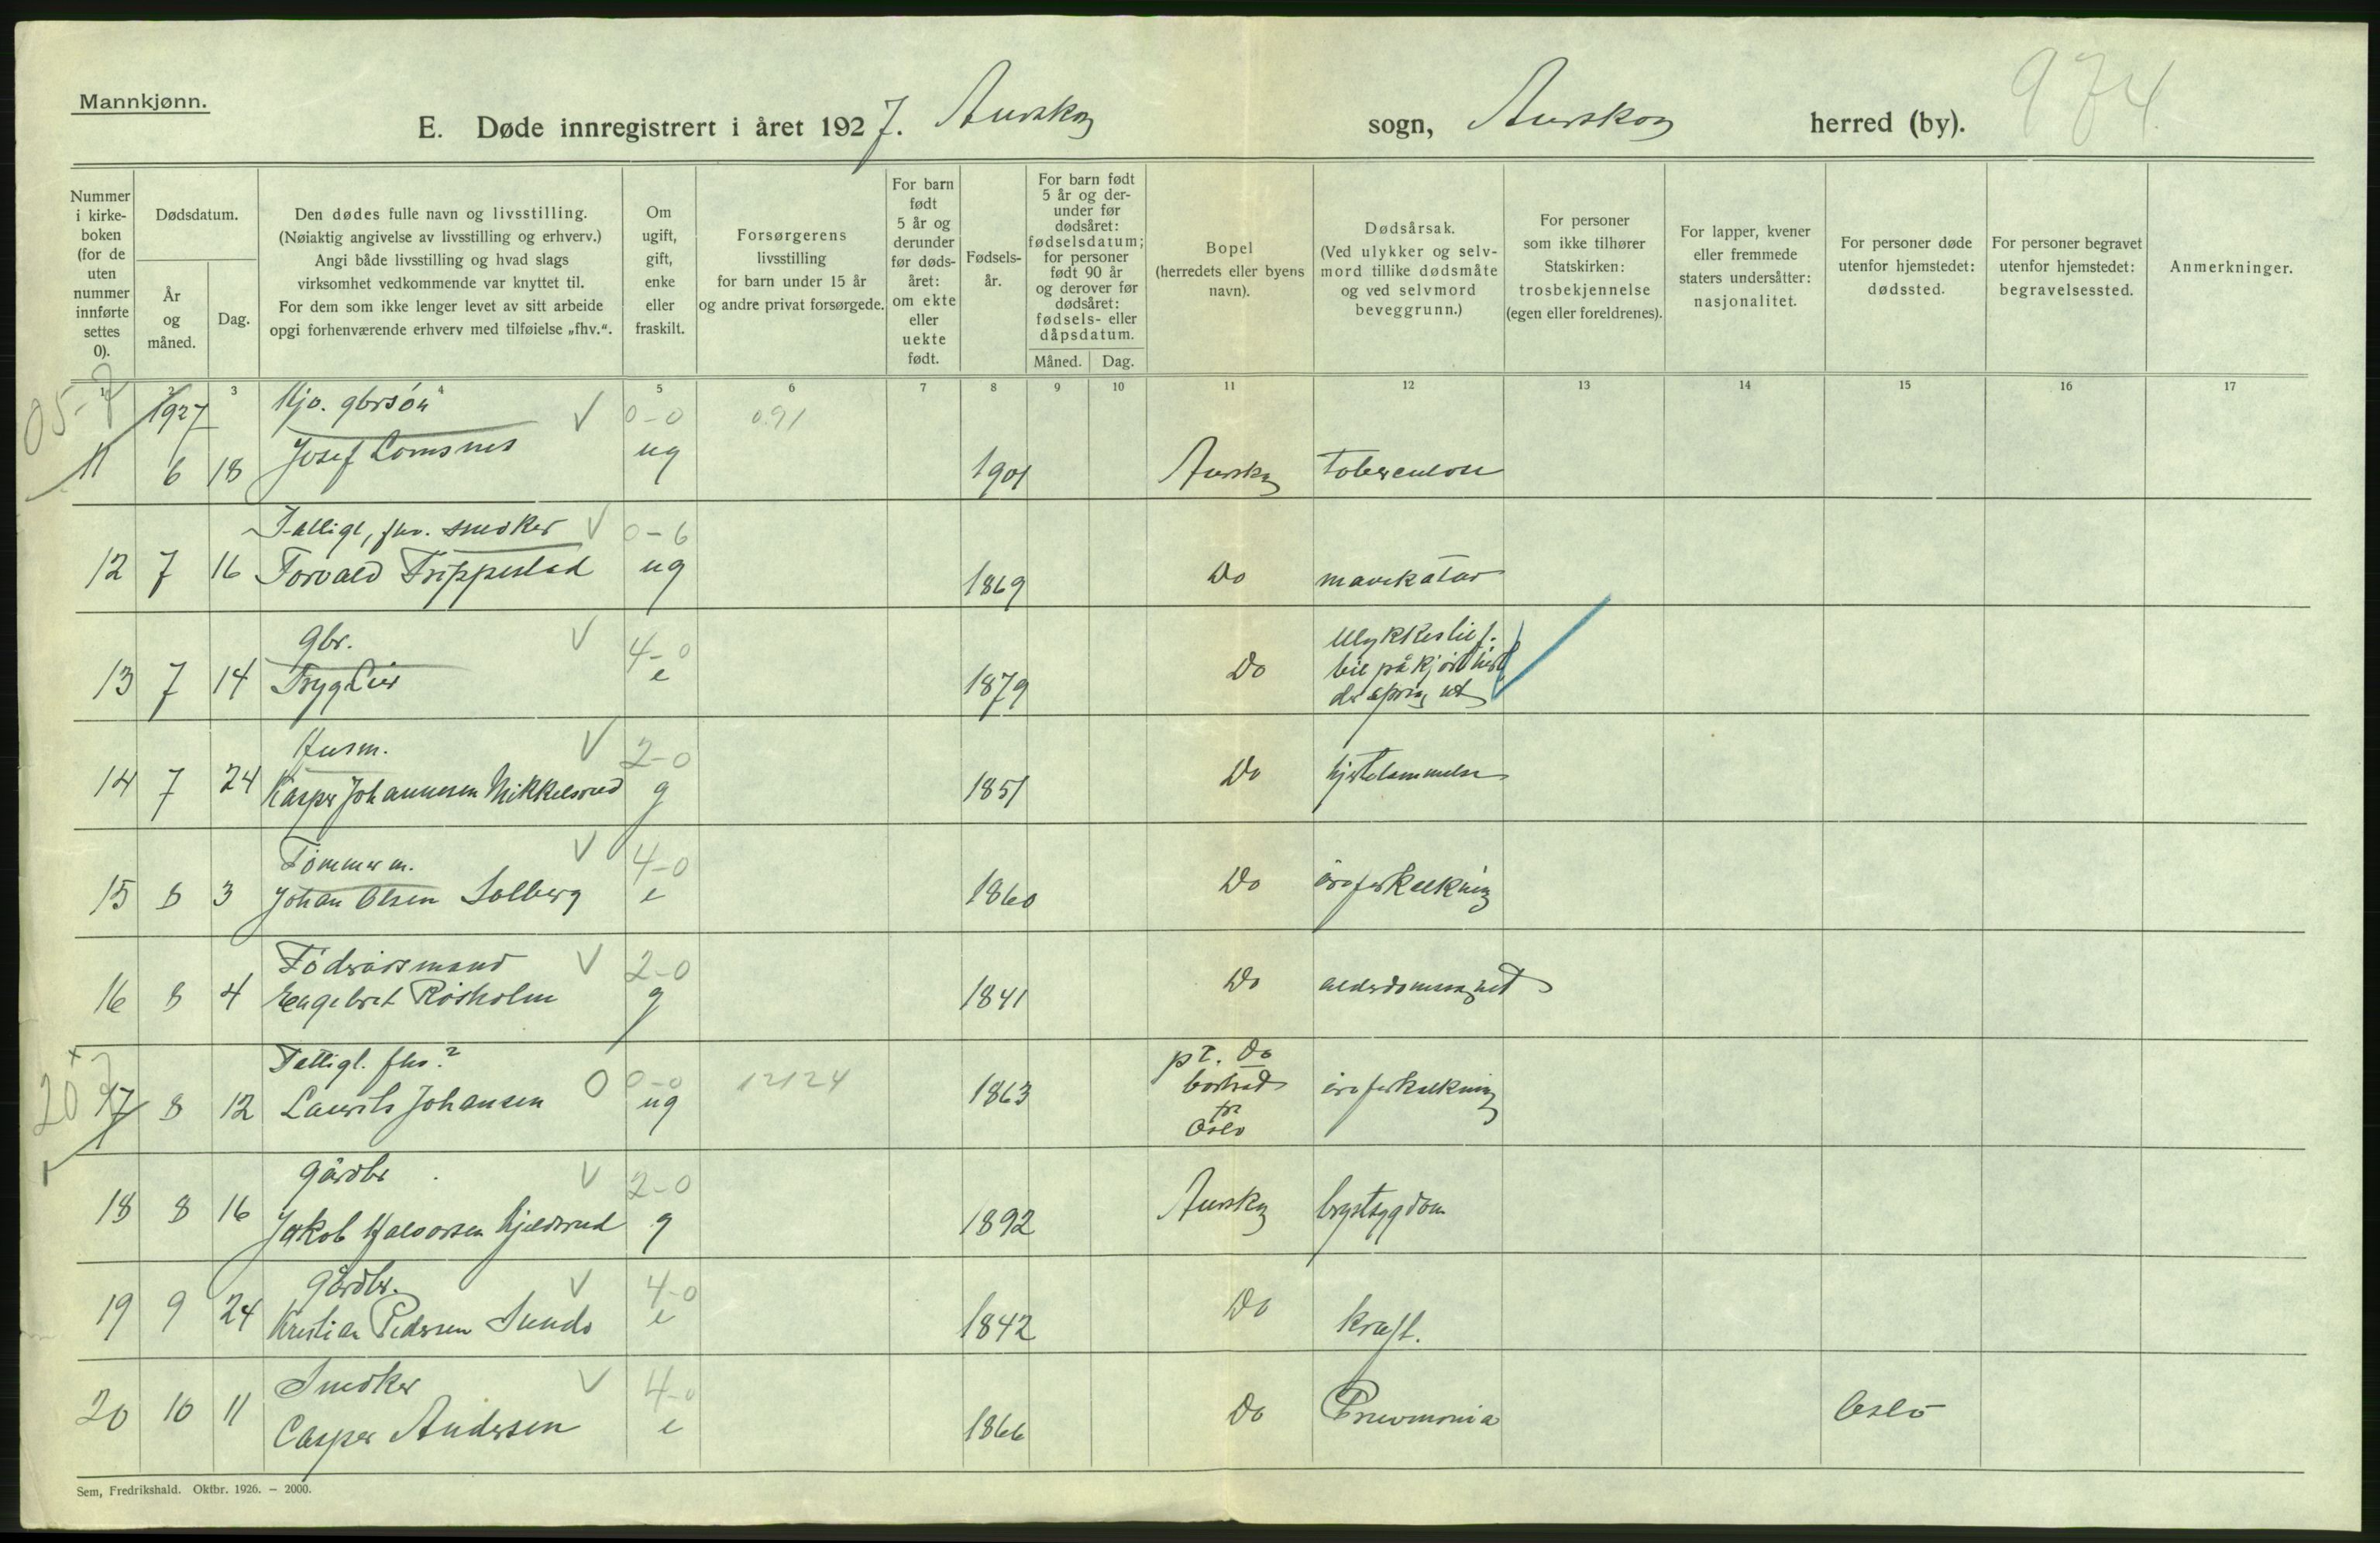 Mannkjønn.
E. Døde innregistrert i året 1927. Aurskog sogn, Aurskog herred (by).
974
Nummer i kirke-boken (for de uten nummer innførte settes 0).
Dødsdatum.
År og måned.
Dag.
Den dødes fulle navn og livsstilling.
(Nøiaktig angivelse av livsstilling og erhverv.)
Angi både livsstilling og hvad slags
virksomhet vedkommende var knyttet til.
For dem som ikke lenger levet av sitt arbeide
opgi forhenværende erhverv med tilføielse „fhv.“.
Om ugift, gift, enke eller fraskilt.
Forsørgerens livsstilling for barn under 15 år og andre privat forsørgede.
For barn født 5 år og derunder før døds-året: om ekte eller uekte født.
Fødsels-år.
For barn født 5 år og der-under før dødsåret: fødselsdatum; for personer født 90 år og derover før dødsåret: fødsels- eller dåpsdatum.
Måned. Dag.
Bopel (herredets eller byens navn).
Dødsårsak.
(Ved ulykker og selv-mord tillike dødsmåte og ved selvmord beveggrunn.)
For personer som ikke tilhører Statskirken: trosbekjennelse (egen eller foreldrenes).
For lapper, kvener eller fremmede staters undersåtter: nasjonalitet.
For personer døde utenfor hjemstedet: dødssted.
For personer begravet utenfor hjemstedet: begravelsessted.
Anmerkninger.
1 2 3 4 5 6 7 8 9 10 11 12 13 14 15 16 17
1927 Hjv. gbrsøn V 0-0 091
11 6 18 Josef Lomsnes ug 1901 Aurskog Toberculose
Fattigl, fhv. snedker V 0-6
12 7 16 Torvald Trippestad ug 1869 Do mavekatar
gbr. V 4-0
13 7 14 Tryg Lier e 1879 Do Ulykkestilf.
bil påkjørt hest
der sprang ut
Husm. V 2-0
14 7 24 Kasper Johannesen Mikkelsrud g 1851 Do hjertelammelse
Tømmerm. V 4-0
15 8 3 Johan Olsen Solberg e 1860 Do åreforkalkning
Føderådsmand V 2-0
16 8 4 Engebret Røsholm g 1841 Do alderdomssvaghet
Fattigl. fhv.? O 0-0 12124
17 8 12 Laurits Johansen ug 1863 pt. Do
bortsad
fr
Oslo
åreforkalkning
Gårdbr. V 2-0
18 8 16 Jakob Halvorsen Kjeldsrud g 1892 Aurskog brystsygdom
Gårdbr. V 4-0
19 9 24 Kristian Pedersen Sundo e 1842 Do kræft.
Snedker V 4-0
20 10 11 Casper Andersen e 1866 Do Pneumonia Oslo
Sem, Fredrikshald. Oktbr. 1926. — 2000.